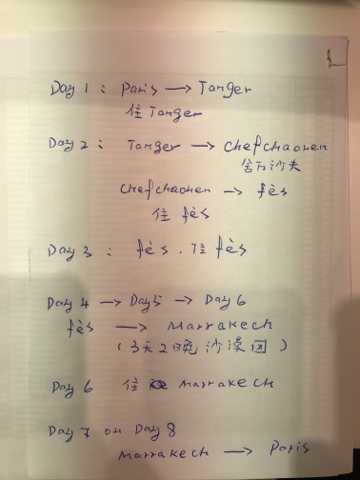 Day 1 : Paris → Tanger
住 Tanger
Day 2 : Tanger → Chefchaouen
舍万沙夫
Chefchaouen → fès
住 fès
Day 3 : fès . 住 fès
Day 4 → Day5 → Day 6
fès → Marrakech
(3天2晚 沙漠团)
Day 6 住 Marrakech
Day 7 ou Day 8
Marrakech → Paris